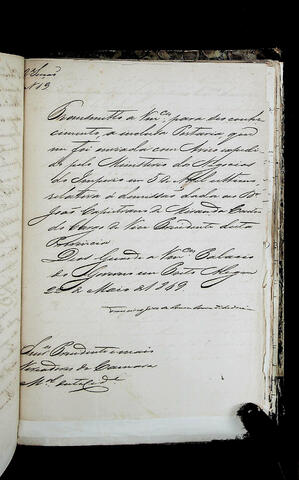 2ª Secçaõ
Nº 13
Transmitto a Vmcês para seu conhe
cimento, a inclusa Portaria, que
me foi enviada com Aviso expedi
do pelo Ministerio dos Negocios
do Imperio em 5 de Abril ultimo
relativa a demissaõ dada ao Dr
Joaõ Capistrano de Miranda Castro
do Cargo de Vice Presidente desta
Provincia
Deos Guarde a Vmcês Palacio
do Governo em Porto Alegre
de Maio de 1869
Snrs Presidente e mais
Vereadores da Camara
Mal desta Cide